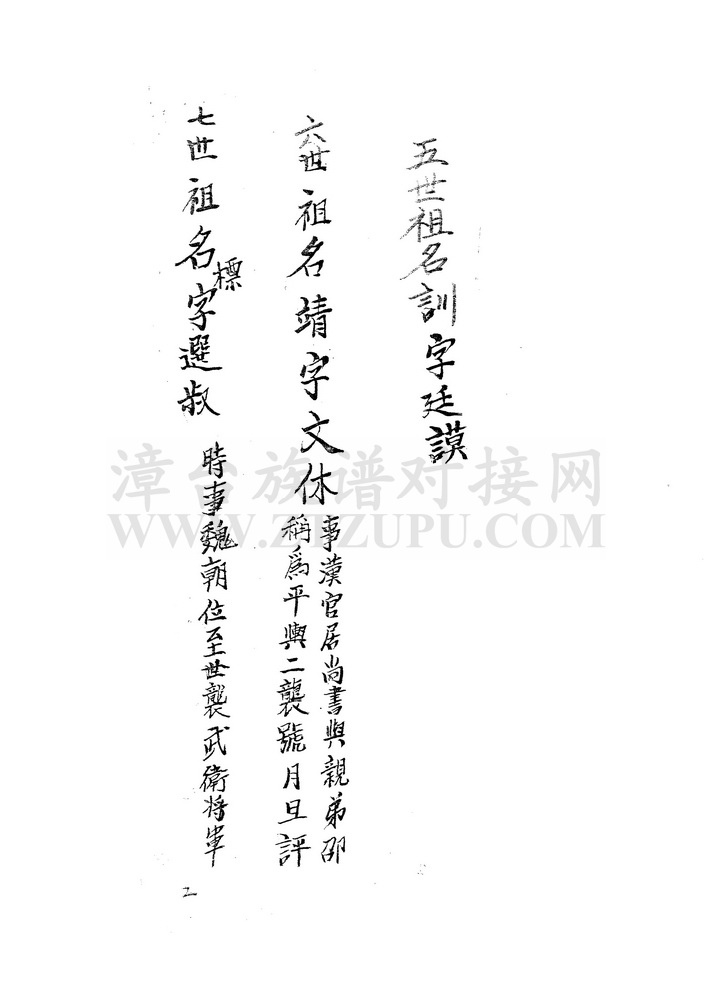 五世祖名訓字廷謨
六世祖名靖字文休
事漢官居尚書與親弟邵
稱為平輿二襲號月旦評
七世祖名標字選叔
時事魏朝位至世襲武衛將軍
2
漳台族谱对接网
WWW.ZTZUPU.COM